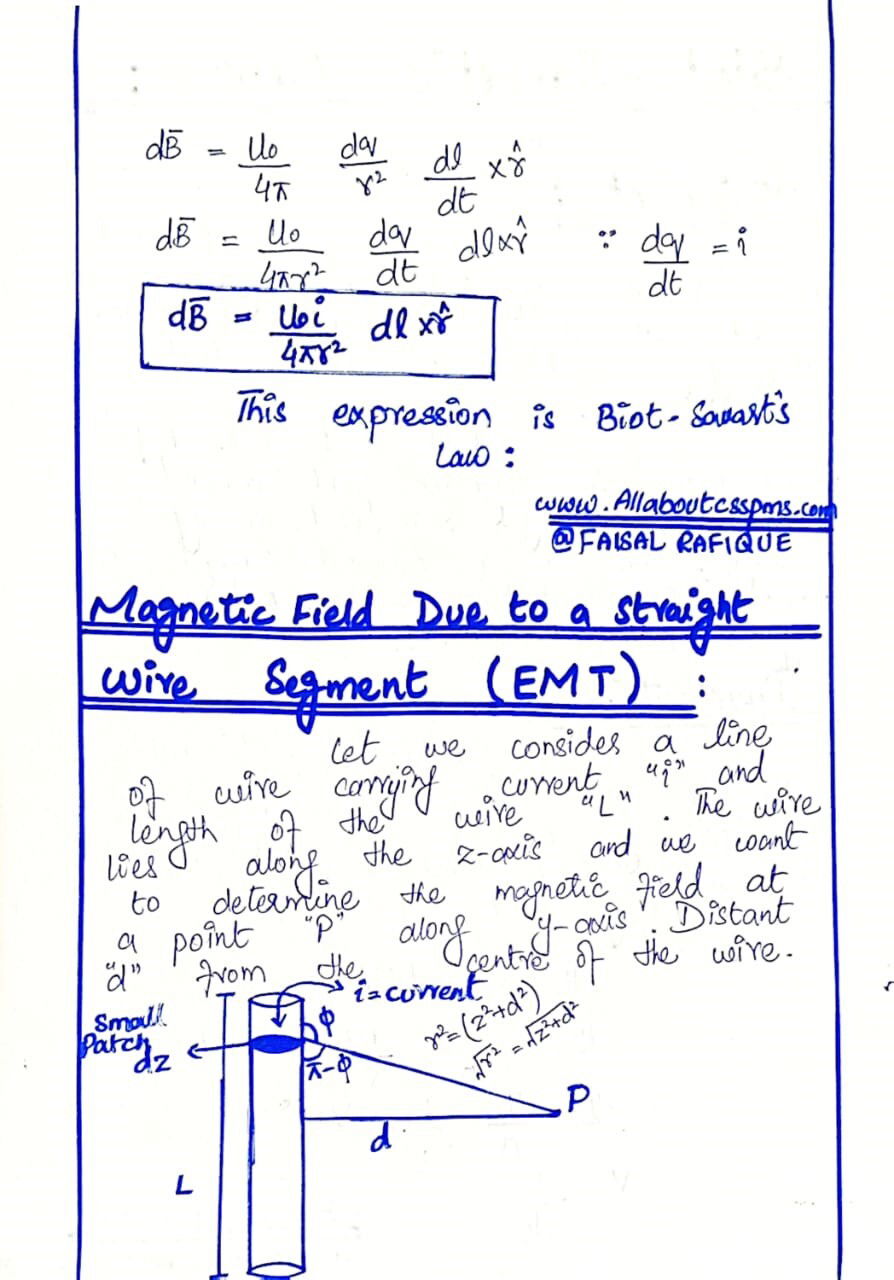 dB̄ = μ₀/4π dq/r² dl/dt × r̂
dB̄ = μ₀/4πr² dq/dt dl×r̂ ∵ dq/dt = i
dB̄ = μ₀i/4πr² dl × r̂
This expression is Biot-Savart's
Law :
www.Allaboutcsspms.com
@FAISAL RAFIQUE
Magnetic Field Due to a straight
wire Segment (EMT) :
Let we consides a line
of wire carrying current "i" and
length of the wire "L". The wire
lies along the z-axis and we want
to determine the magnetic field at
a point "P" along y-axis. Distant
"d" from the centre of the wire.
i = current
Small
Patch
dz
ϕ
π-ϕ
r² = (z²+d²)
√r² = √z²+d²
P
d
L